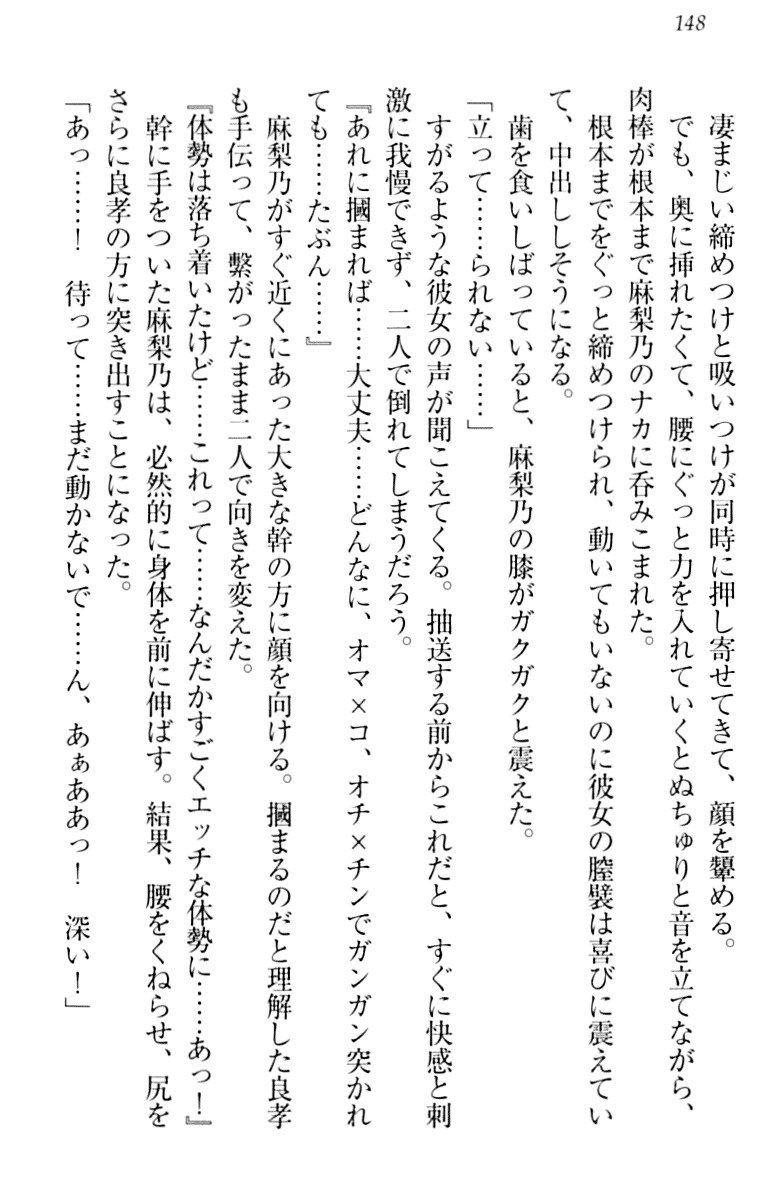 148
凄まじい締めつけと吸いつけが同時に押し寄せてきて、顔を顰める。
でも、奥に挿れたくて、腰にぐっと力を入れていくとぬちゅりと音を立てながら、
肉棒が根本まで麻梨乃のナカに呑みこまれた。
根本までをぐっと締めつけられ、動いてもいないのに彼女の膣襞は喜びに震えてい
て、中出ししそうになる。
歯を食いしばっていると、麻梨乃の膝がガクガクと震えた。
「立って……られない……」
すがるような彼女の声が聞こえてくる。抽送する前からこれだと、すぐに快感と刺
激に我慢できず、二人で倒れてしまうだろう。
『あれに摑まれば……大丈夫……どんなに、オマ×コ、オチ×チンでガンガン突かれ
ても……たぶん……』
麻梨乃がすぐ近くにあった大きな幹の方に顔を向ける。摑まるのだと理解した良孝
も手伝って、繫がったまま二人で向きを変えた。
『体勢は落ち着いたけど……これって……なんだかすごくエッチな体勢に……あっ！』
幹に手をついた麻梨乃は、必然的に身体を前に伸ばす。結果、腰をくねらせ、尻を
さらに良孝の方に突き出すことになった。
「あっ……！　待って……まだ動かないで……ん、あぁああっ！　深い！」